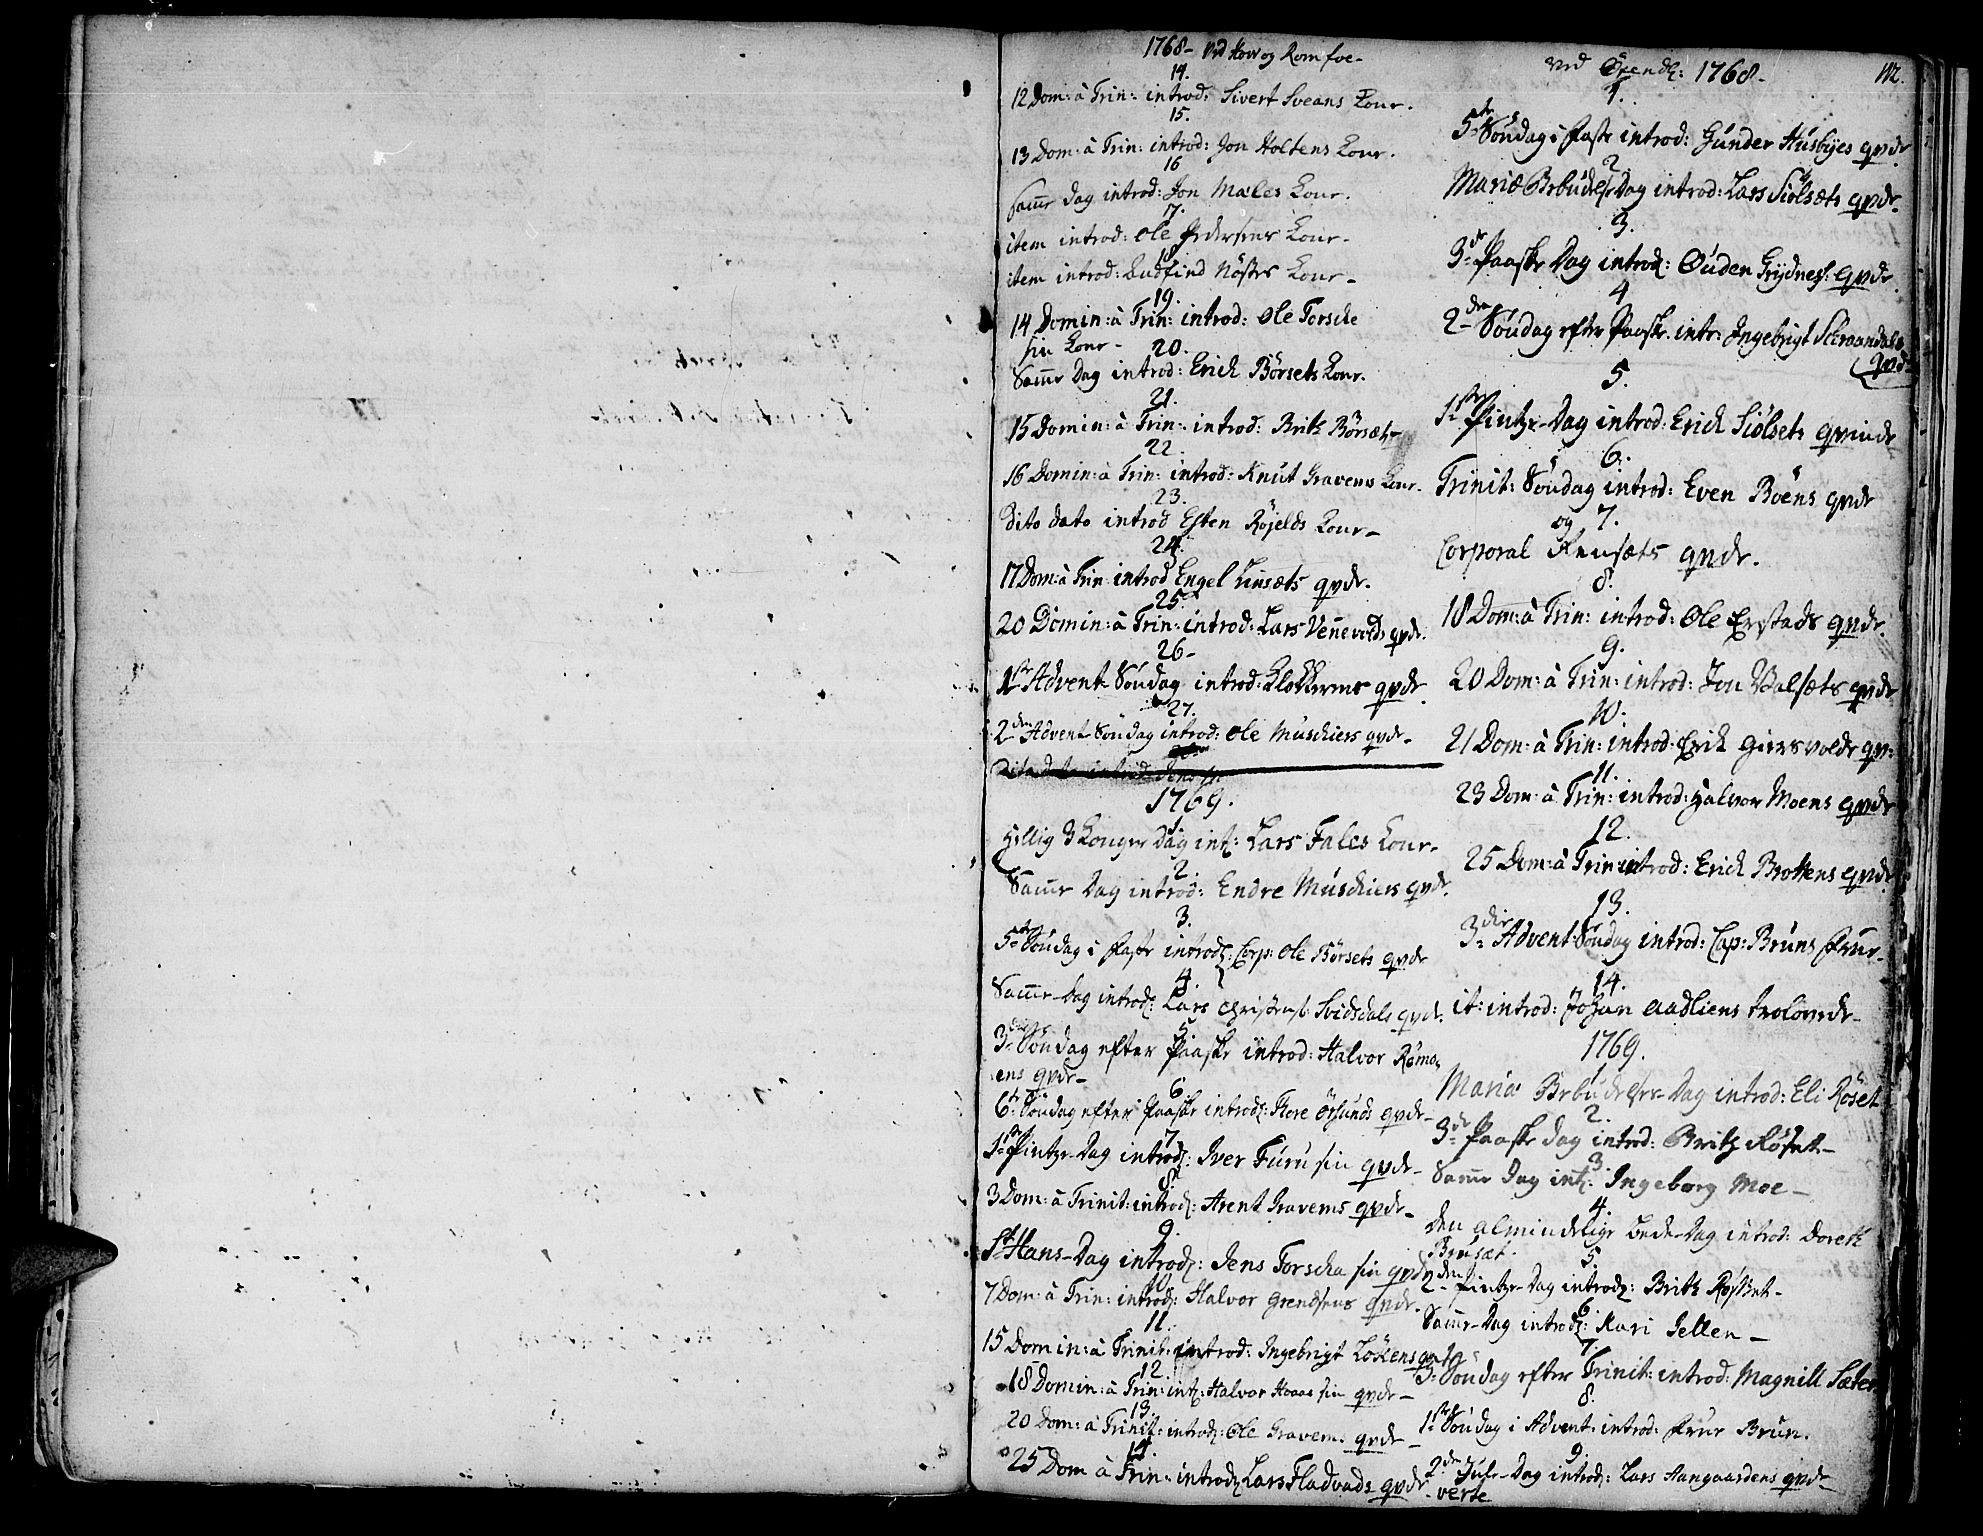 1768 - ved Hov og Romfoe -
14.
12 Dom: à Trin: introd: Sivert Sveans Kone.
15.
13 Dom: à Trin: introd: Jon Holtens Kone.
16
Samme Dag introd: Jon Males Kone.
17.
item introd: Ole Pedersens Kone -
18
item introd: Gudfind Nøstes Kone -
19.
14 Domin: à Trin: introd: Ole Torske
sin Kone -
20.
Samme Dag introd: Erich Børsets Kone.
21.
15 Domin: à Trin: introd: Brit Børsæt -
22.
16 Domin: à Trin: introd: Knut Gravems Kone.
23.
Dito dato introd Esten Røjelds Kone -
24.
17 Dom: à Trin: introd Engel Linsæts qvde.
25.
20 Domin: à Trin: introd: Lars Vennevolds qvde.
26 -
1ste Advent Søndag introd: Klokkerens qvde
27.
2den Advent Søndag introd: Ole Muschiers qvde -
Dito dato introd: Jens
1769.
1.
Hellig 3 Konger Dag int: Lars Fales Kone -
2.
Samme Dag introd: Endre Muschiers qvde.
3.
5te Søndag i Faste introd: Corp: Ole Børsets qvde
4.
Samme Dag introd: Lars Christens: Svidsdals qvde.
5
3die Søndag efter Paaske introd: Halvor Romo-
ens qvde -
6.
6te Søndag efter Paaske introd: Flore Ørsunds qvde -
7
1ste Pintze-Dag introd: Iver Furu sin qvde -
8.
3 Dom: à Trinit: introd: Arent Gravems qvde -
9.
St Hans-Dag introd: Jens Torske sin qvde
10
7 Dom: à Trin: introd: Halvor Grendsens qvde -
11.
15 Domin: à Trinit: introd: Ingebrigt Løkens qvde
12.
18 Domin: à Trin: int: Halvor Hoaas sin qvde -
13.
20 Dom: à Trinit: introd: Ole Gravems qvde -
14
25 Dom à Trin: introd: Lars Fladvads qvde
ved Ørendl: 1768 -
112.
1.
5te Søndag i Faste introd: Gunder Husbyes qvde
2.
Mariæ Bebudelse Dag introd: Lars Siølsæts qvde.
3.
3die Paaske Dag introd: Ouden Grydnes: qvde
4
2den Søndag efter Paaske intr: Ingebrigt Skrøndals
qvde
5.
1ste Pintze-Dag introd: Erich Siølsets qvinde
6.
Trinit: Søndag introd: Even Böens qvde
og 7.
Corporal Reusæts qvde.
8.
18 Dom: à Trin: introd: Ole Erstads qvde.
9.
20 Dom: à Trin: introd: Jon Valsæts qvde.
10.
21 Dom: à Trin: introd: Erich Giersvolds qv:
11.
23 Dom: à Trin: introd: Halvor Moens qvde
12.
25 Dom: à Trin: introd: Erich Brottens qvde
13.
3die Advent Søndag introd: Cap: Bruns Frue -
14.
it: introd: Johan Aadliens trolovede -
1769.
1
Mariæ Bebudelses-Dag introd: Eli Røset
2.
3die Paaske dag introd: Brit Røset -
3.
Samme Dag int: Ingeborg Moe -
4.
Den almindelige Bede-Dag introd: Doret
Brusæt.
5.
2den Pintze-Dag introd: Brit Røsket -
6.
Samme-Dag introd: Kari Jellen -
7.
3die Søndag efter Trinit: introd: Magnill Sæter
8.
1ste Søndag i Advent: introd: Frue Brun.
9.
2den Jule-Dag introd: Lars Aangaardens qvde -
verte